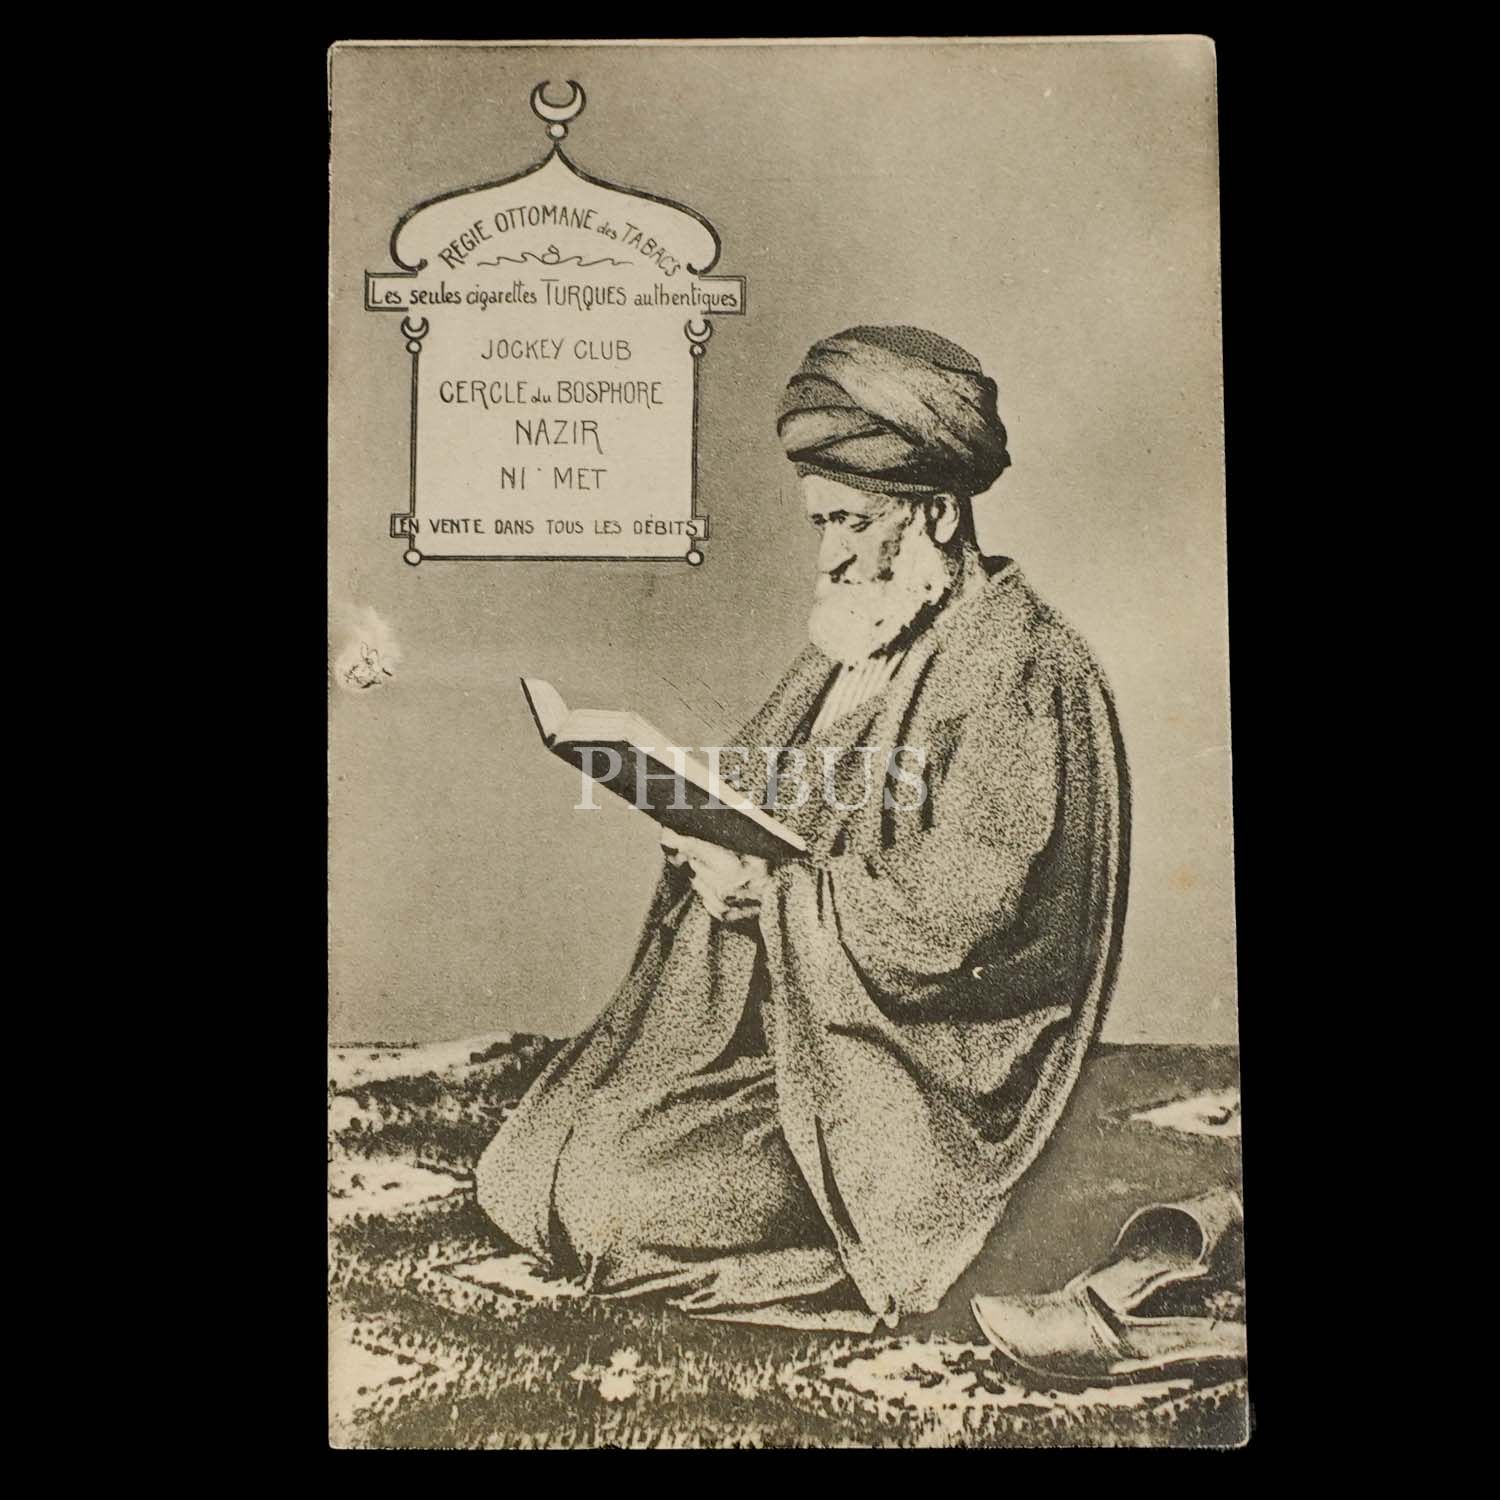 REGIE OTTOMANE des TABACS
Les seules cigarettes TURQUES authentiques
JOCKEY CLUB
CERCLE du BOSPHORE
NAZIR
NI ' MET
EN VENTE DANS TOUS LES DÉBITS
PHEBUS